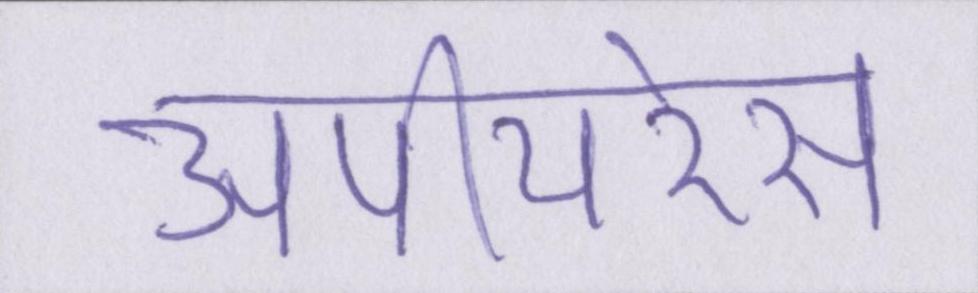 अपीयरेस